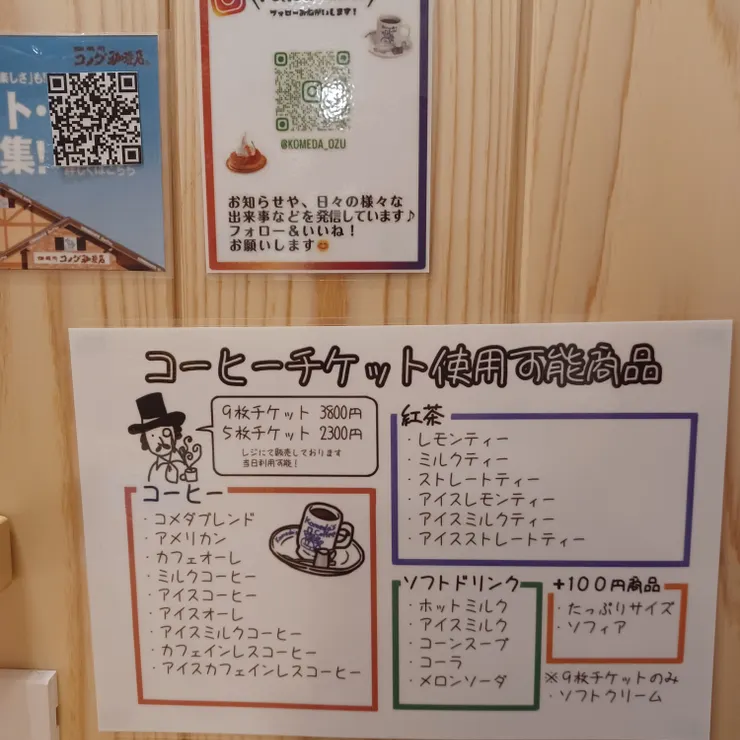 珈琲所 コメダ珈琲店
楽しさ」も!
ト・
集!
詳しくはこちら
珈琲所 コメダ珈琲店
フォローおねがいします!
@KOMEDA_OZU
お知らせや、日々の様々な
出来事などを発信しています♪
フォロー&いいね!
お願いします😊
コーヒーチケット使用可能商品
9枚チケット 3800円
5枚チケット 2300円
レジにて販売しております
当日利用可能!
コーヒー
・コメダブレンド
・アメリカン
・カフェオーレ
・ミルクコーヒー
・アイスコーヒー
・アイスオーレ
・アイスミルクコーヒー
・カフェインレスコーヒー
・アイスカフェインレスコーヒー
紅茶
・レモンティー
・ミルクティー
・ストレートティー
・アイスレモンティー
・アイスミルクティー
・アイスストレートティー
ソフトドリンク
・ホットミルク
・アイスミルク
・コーンスープ
・コーラ
・メロンソーダ
+100円商品
・たっぷりサイズ
・ソフィア
※9枚チケットのみ
・ソフトクリーム